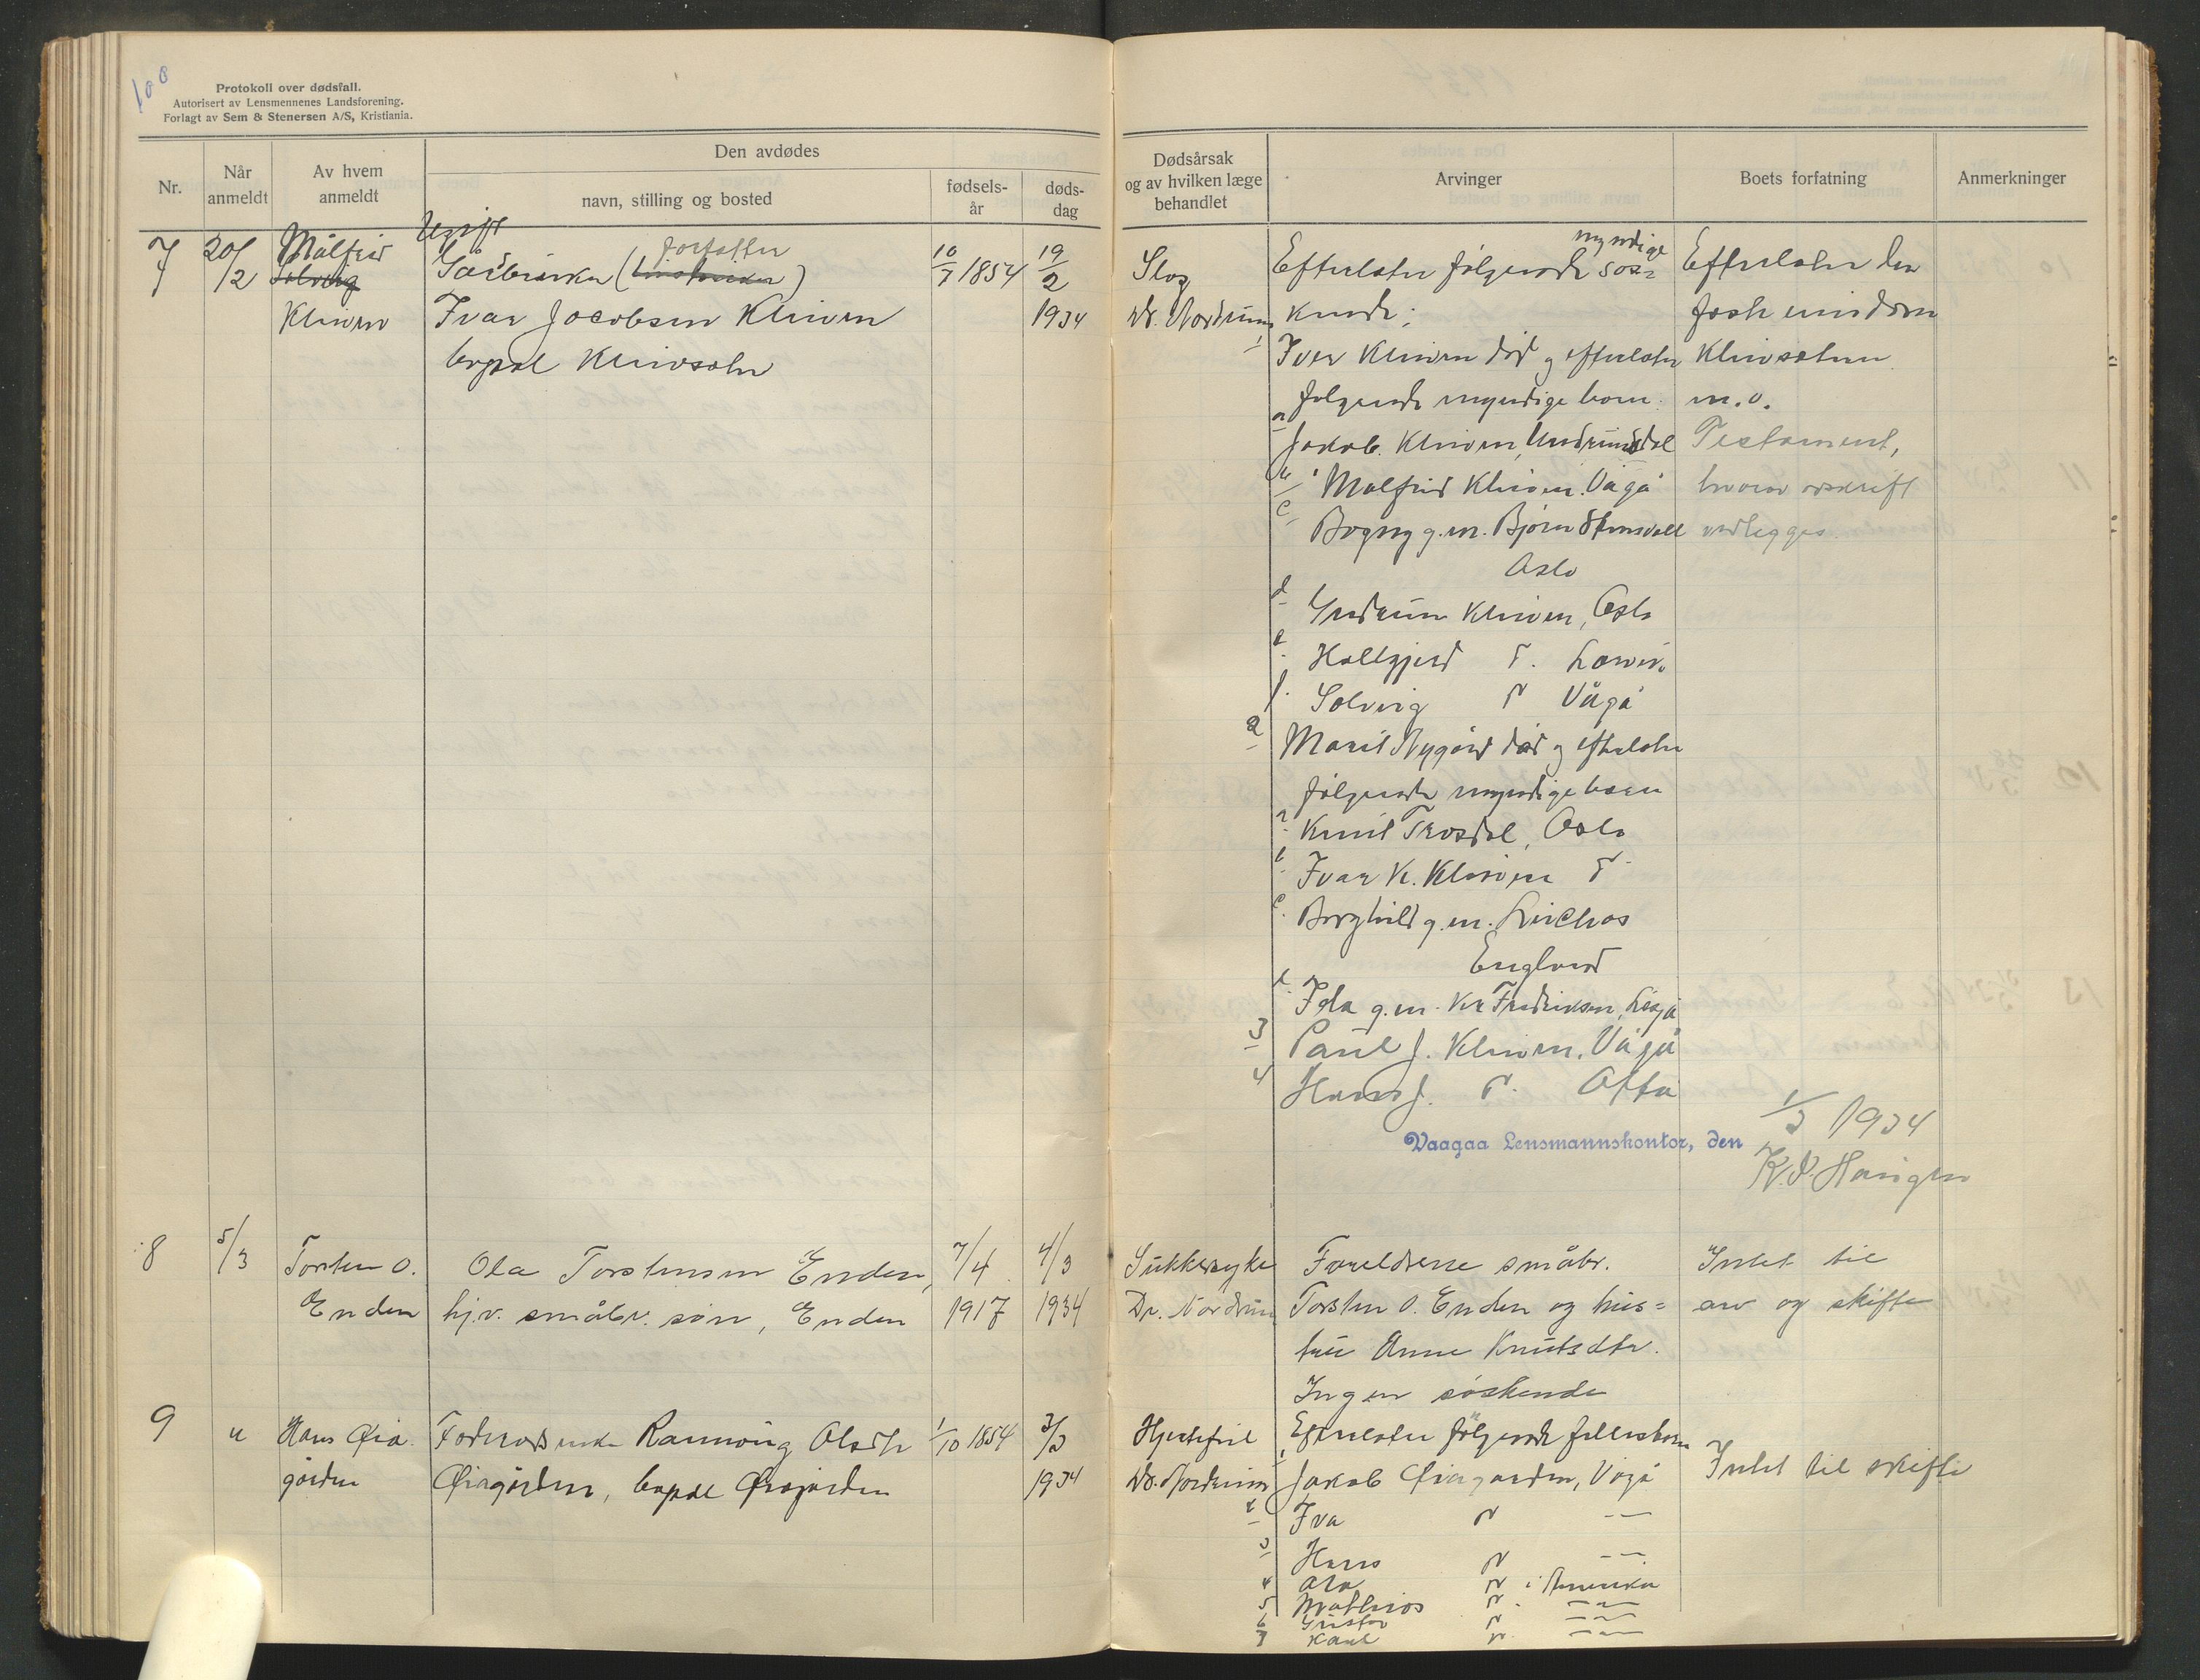 100
Protokoll over dødsfall.
Autorisert av Lensmennenes Landsforening.
Forlagt av Sem & Stenersen A/S, Kristiania.
Nr.
Når anmeldt
Av hvem anmeldt
Den avdødes
navn, stilling og bosted
fødselsår
dødsdag
Dødsårsak og av hvilken læge behandlet
Arvinger
Boets forfatning
Anmerkninger
7 20/2 Målfrid Solveig Kleiven
Ugift
Gårbruker ( forfatter )
Ivar Jacobsen Kleiven
bopæl Kleivsæter
10/7 1854
19/2 1934
Slag
Dr. Nordrum
Efterlater følgende myndige søs=
kende:
1 Iver Kleiven død og efterlater
følgende myndige born:
a Jakob Kleiven,
b Målfrid Kleiven. Vågå
c Bogny g.m. Bjørn
Oslo
d Gudrun Kleiven, Oslo
e Hallgjerd
f. Solveig Vågå
2 Marit Nygård død og efterlater
følgende myndige born
a Knut Trosdal, Oslo
b Ivar K. Kleiven
c. Borghild g.m.
England
d Ida g.m. Kr Fredriksen, Lesja
3 Paul J. Kleiven, Vågå
4 Hans J. Otta
Efterlater den
faste eiendom
Kleivsæteren
m.v.
Testament,
hvorav avskrift
vedlegges.
Vaagaa Lensmannskontor, den 1/3 1934
8 5/3 Torsten O. Enden
Ola Torstensen Enden,
hj.v. småbr. søn, Enden
7/4 1917
4/3 1934
Sukkersyke
Dr. Nordrum
Foreldrene småbr.
Torsten O. Enden og hus=
tru Anne Knutsdtr.
Ingen søskende
Intet til
arv og skifte
9 " Hans Øiagården
Føderådsenke Rannveig Olsdtr
Øiagården, bopæl Øiagården
1/10 1854
3/3 1934
Hjertefeil
Dr. Nordrum
Efterlater følgende fellesborn
1 Jakob Øiagarden, Vågå
2 Iva
3 Hans
4 Ola i Amerika
5 Mathias
6 Gustav
7 Karl
Intet til skifte